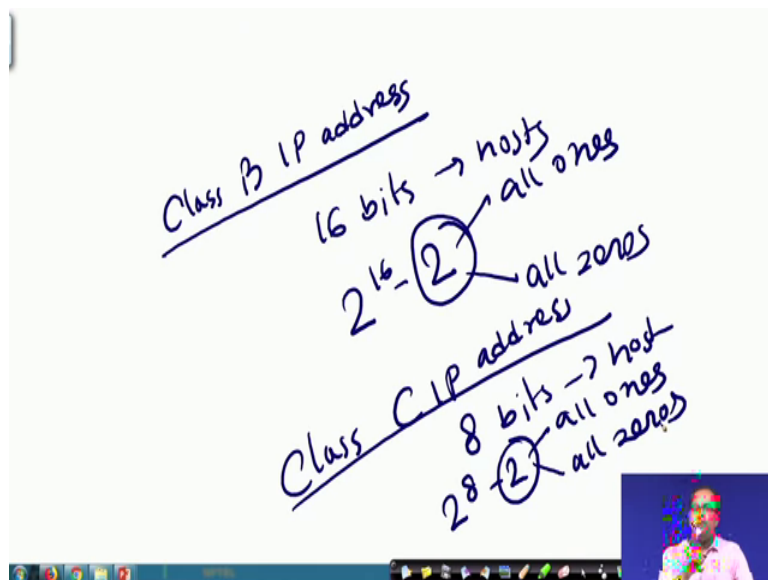 Class B IP address
16 bits → hosts
2^16 - 2
all ones
all zeros
Class C IP address
8 bits → host
2^8 - 2
all ones
all zeros